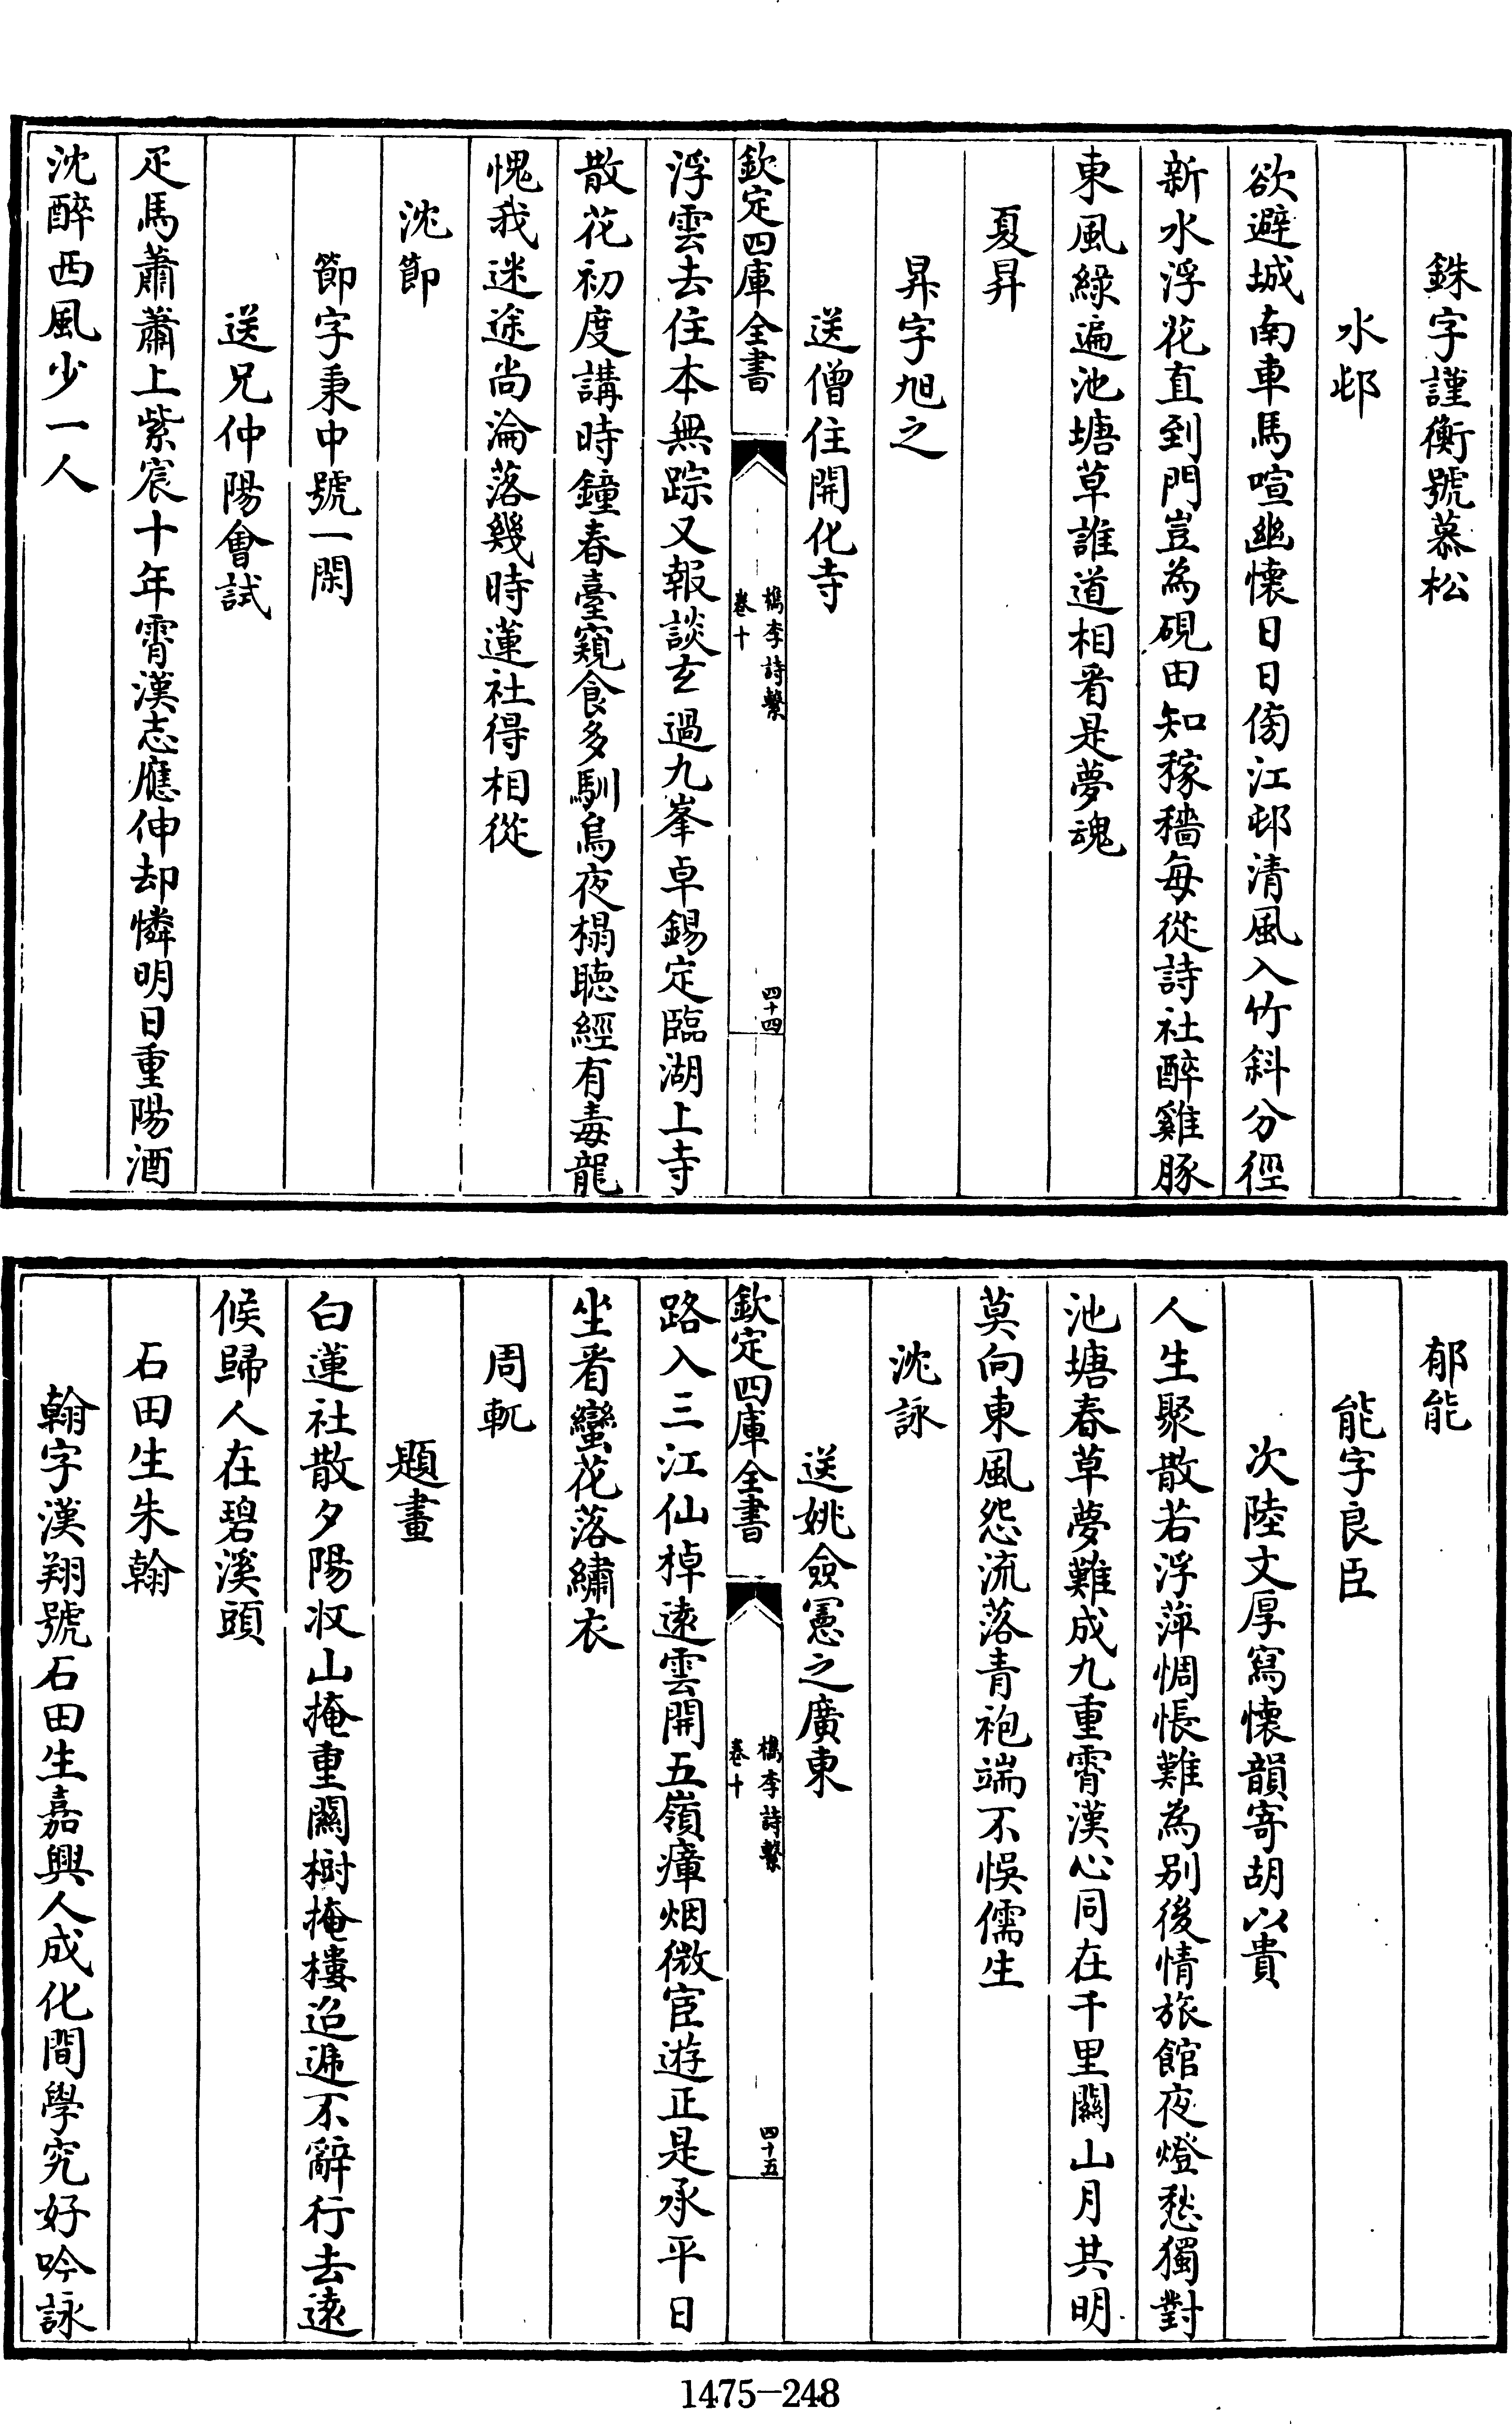 銖字謹衡號慕松
水邨
欲避城南車馬喧幽懷日日傍江邨清風入竹斜分徑
新水浮花直到門豈為硯田知稼穡每從詩社醉雞豚
東風綠遍池塘草誰道相看是夢魂
夏昇
昇字旭之
送僧住開化寺
欽定四庫全書
檇李詩繫
卷十
四十四
浮雲去住本無踪又報談玄過九峯卓錫定臨湖上寺
散花初度講時鐘春臺窺食多馴烏夜榻聽經有毒龍
愧我迷途尚淪落幾時蓮社得相從
沈節
節字秉中號一閑
送兄仲陽會試
疋馬蕭蕭上紫宸十年霄漢志應伸却憐明日重陽酒
沈醉西風少一人
郁能
能字良臣
次陸文厚寫懷韻寄胡以貴
人生聚散若浮萍惆悵難為别後情旅館夜燈愁獨對
池塘春草夢難成九重霄漢心同在千里關山月共明
莫向東風怨流落青袍端不悞儒生
沈詠
送姚僉憲之廣東
欽定四庫全書
檇李詩繫
卷十
四十五
路入三江仙棹遠雲開五嶺瘴烟微宦遊正是承平日
坐看蠻花落繡衣
周軏
題畫
白蓮社散夕陽収山掩重關樹掩樓迢遞不辭行去遠
候歸人在碧溪頭
石田生朱翰
翰字漢翔號石田生嘉興人成化間學究好吟詠
1475-248